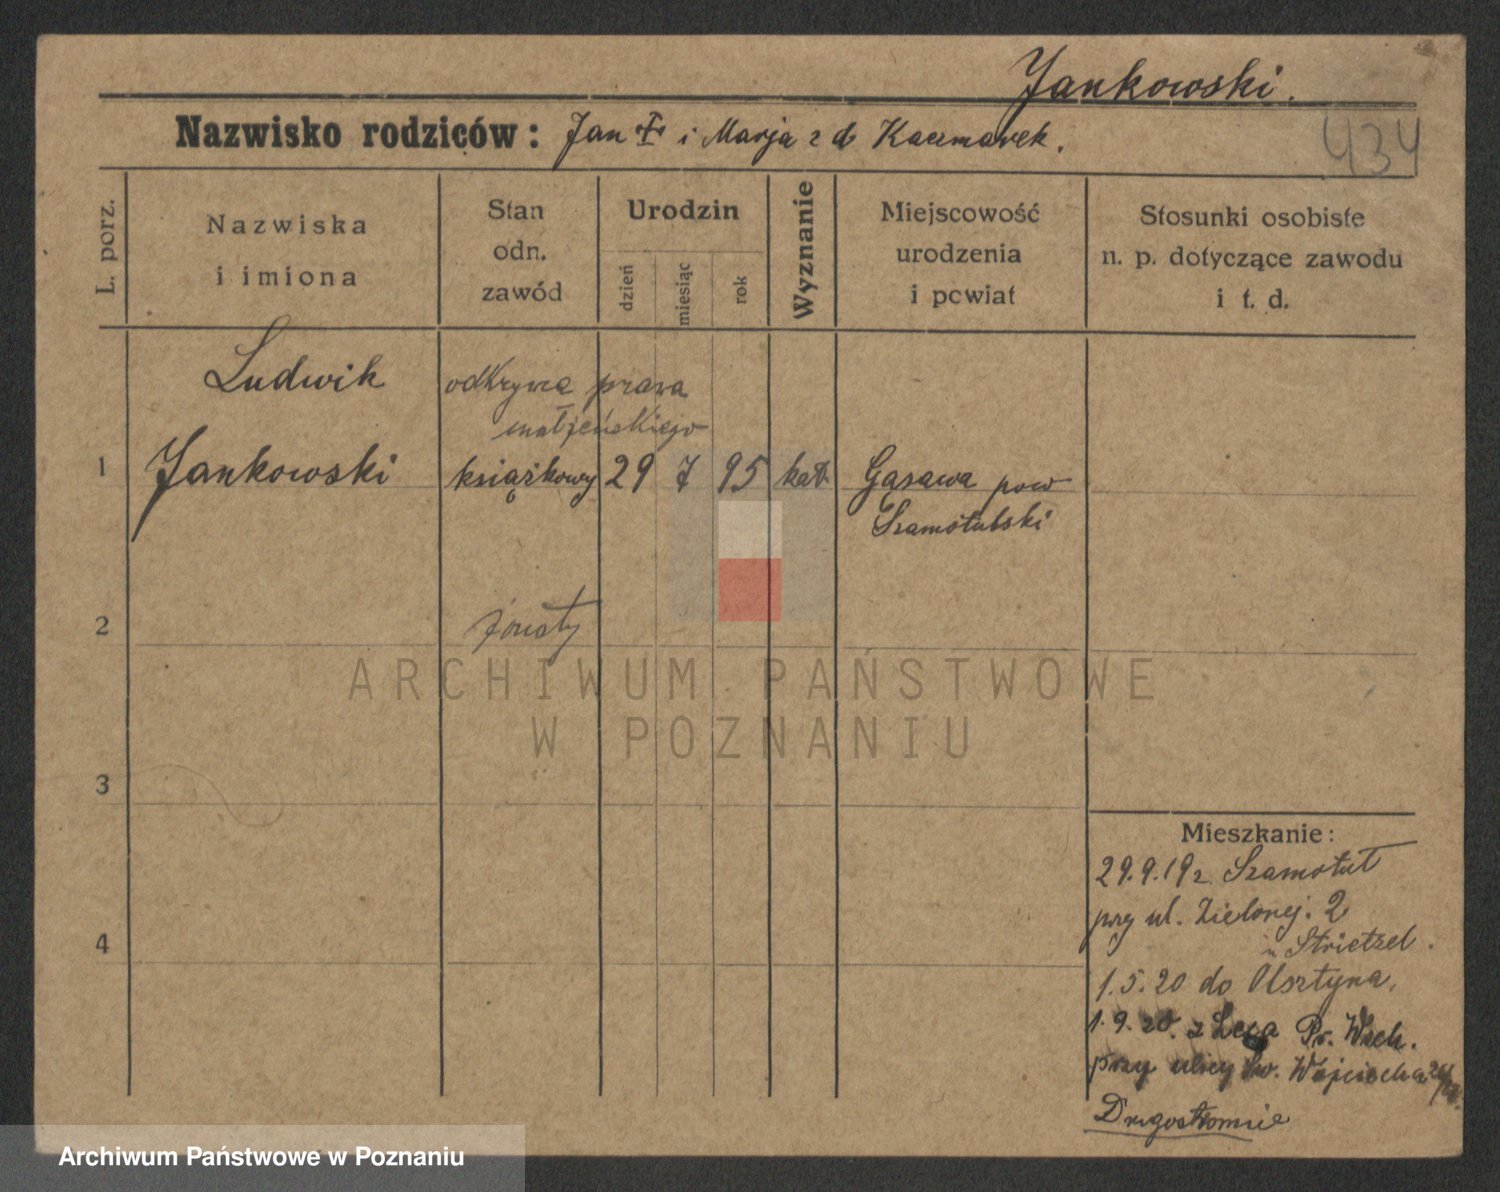 Jankowski.
Nazwisko rodziców: Jan i Marja z d Kaczmarek.
434
L. porz.
Nazwiska
i imiona
Stan
odn.
zawód
Urodzin
dzień
miesiąc
rok
Wyznanie
Miejscowość
urodzenia
i powiat
Stosunki osobiste
n. p. dotyczące zawodu
i t. d.
Ludwik
prawa
małżeńskiego
1 Jankowski książkowy 29 7 95 kat. Gąsawa pow
Szamotulski
2 żonaty
ARCHIWUM PAŃSTWOWE
W POZNANIU
3
Mieszkanie:
29.9.19 z Szamotuł
przy ul. Zielonej. 2
Strietzel.
4
1.5.20 do Olsztyna.
1.9.20. z Pr. Wsch.
przy ulicy św. Wojciecha
Archiwum Państwowe w Poznaniu